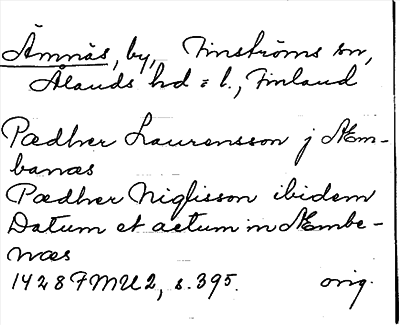 Ämnäs, by, Finströms sn,
Ålands hd o. l., Finland
Pædher Laurensson j Æm-
banæs
Pædher Niglisson ibidem
Datum et actum in Æmbe-
næs
1428 FMU 2, s. 395. orig.